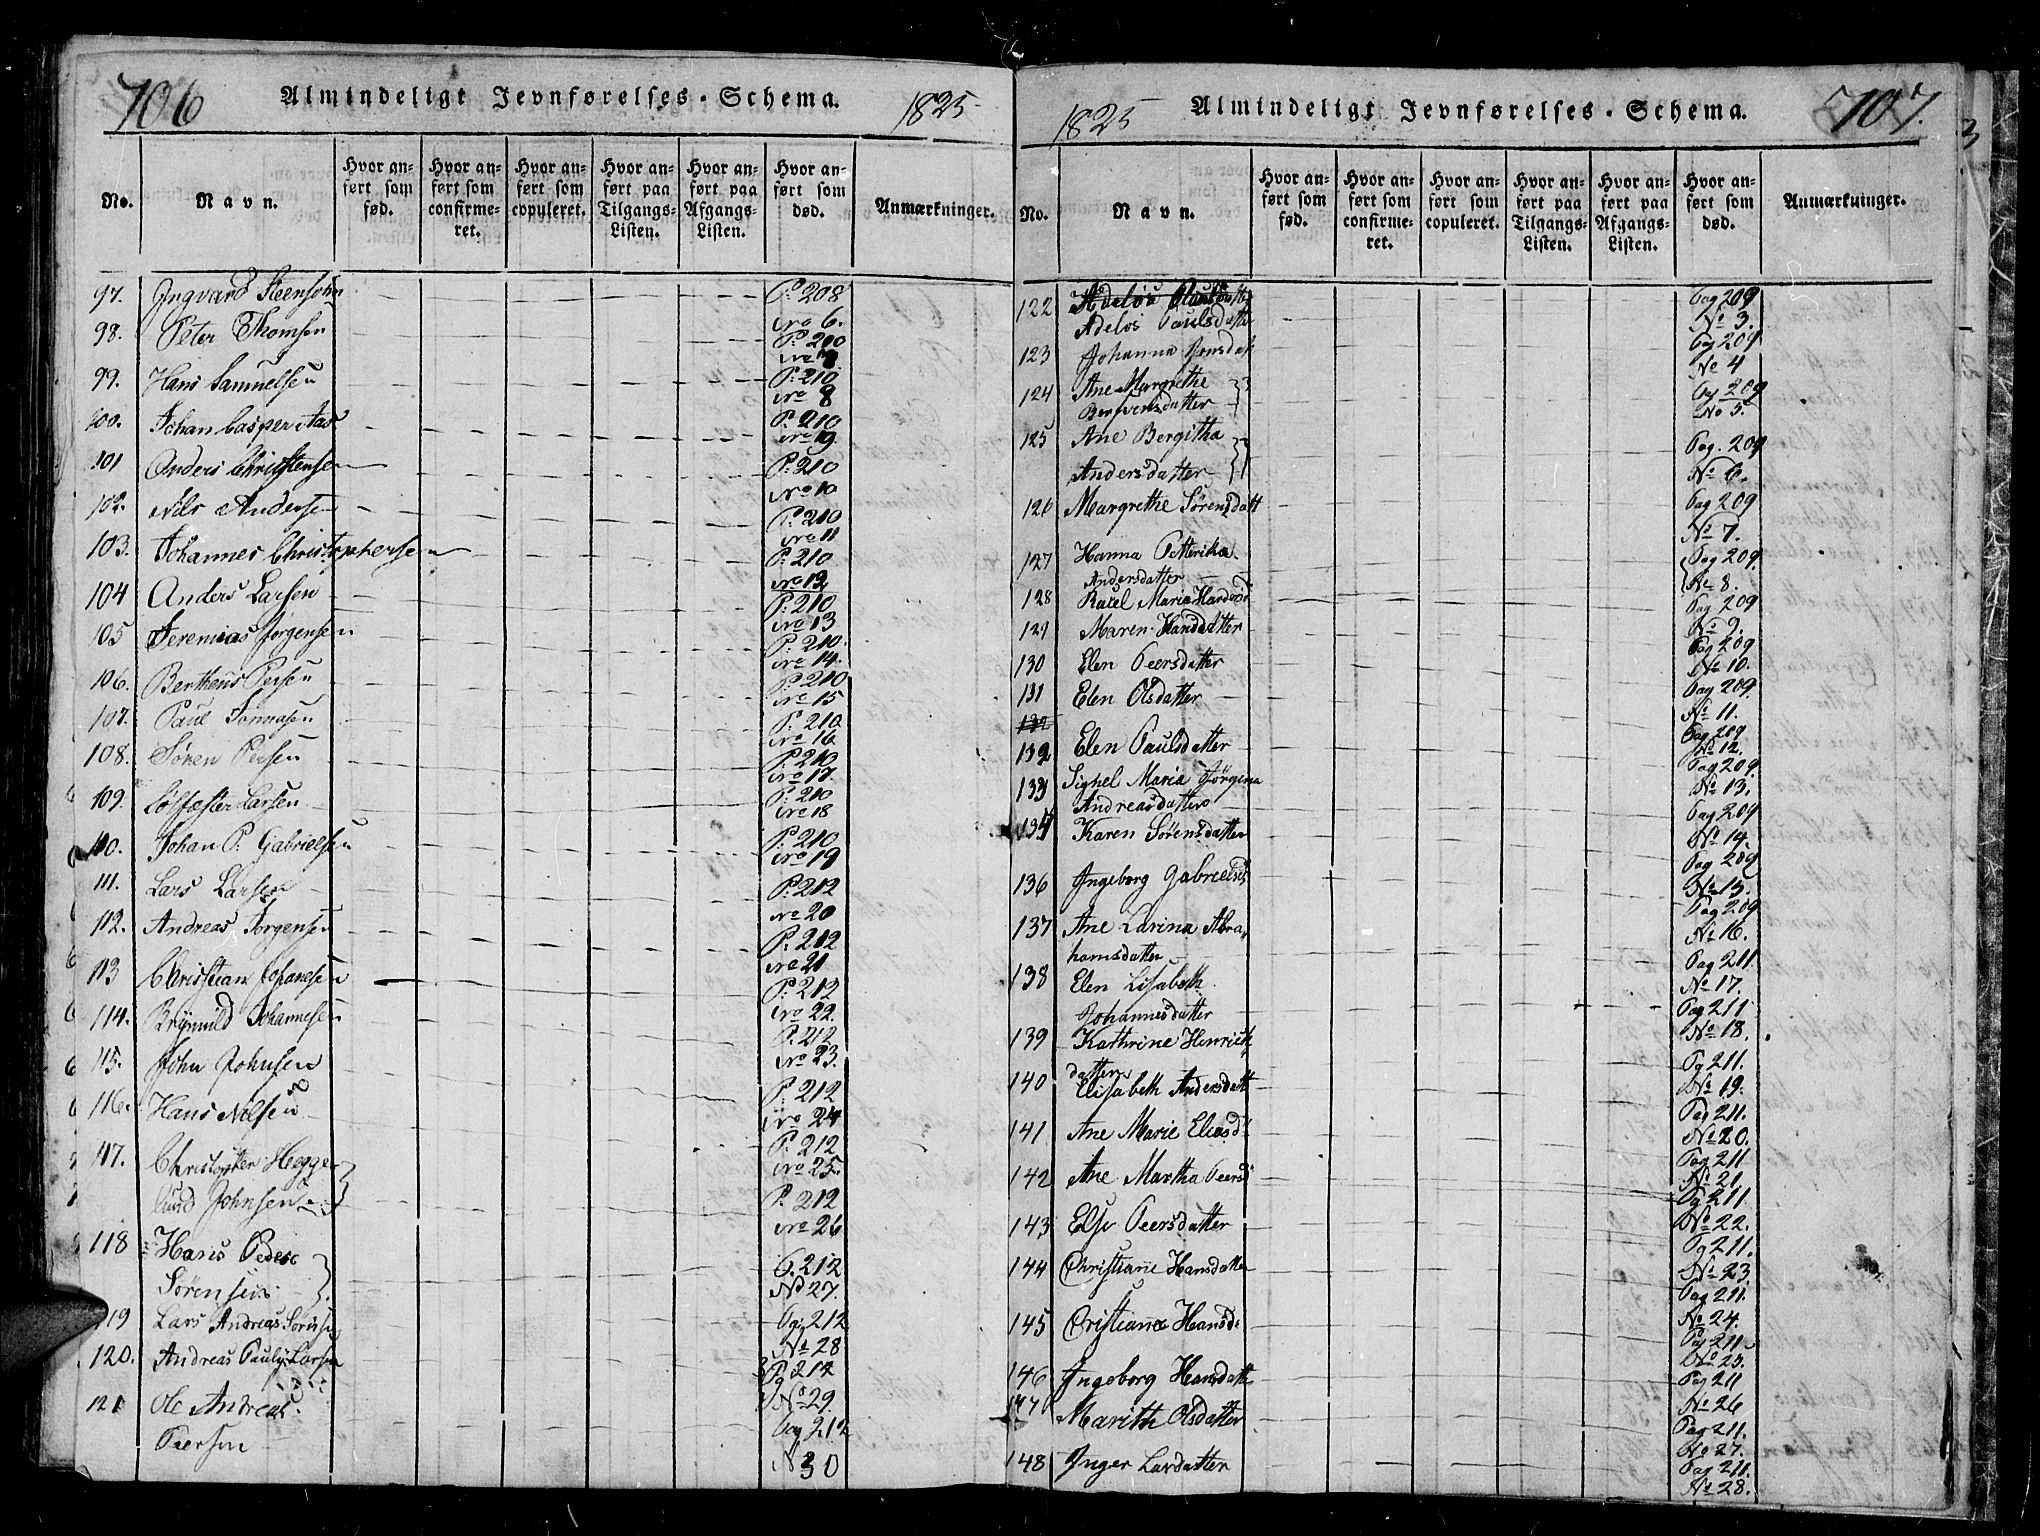 706 Almindeligt Jevnførelses-Schema. 1825
No. Navn. Hvor anført som fød. Hvor anført som confirmeret. Hvor anført som copuleret. Hvor anført paa Tilgangs-Listen. Hvor anført paa Afgangs-Listen. Hvor anført som død. Anmærkninger.
97. Ingvard Steensohn P: 208
No 6.
98. Peter Thomsen P: 210
No 7.
99. Hans Samuelsen P: 210
No 8
100. Johan Casper P: 210
No 9.
101 Anders Christensen P: 210
No 10
102. Nils Andersen P: 210
No 11
103. Johannes Christophersen P: 210
No 12
104 Anders Larsen P: 210
No 13
105 Jeremias Jørgensen P: 210.
No 14.
106. Berthens Persen P: 210
No 15
107. Paul Jonnasen P: 210.
No 16
108. Søren Persen P: 210
No 17.
109. Larsen P: 210
No 18
110. Johan P. Gabrielsen P: 210
No 19
111. Lars Larsen P: 212
No 20
112. Andreas Jørgensen P: 212
No 21
113 Christian Johansen P: 212
No 22.
114. Brynnild Johannesen P: 212
No 23.
115. John Johnsen P: 212
No 24
116. Hans Nilsen P: 212
No 25.
117. Christopher Hegge
lund Johnsen P: 212
No 26
118 Hans Peder
Sørensen P. 212
No 27.
119 Lars Andreas Pg 212
No 28
120. Andreas Pauly Larsen Pg 212
No 29.
121 Ole Andreas
Peersen Pag 212
N 30
1825 Almindeligt Jevnførelses-Schema. 707.
No. Navn. Hvor anført som fød. Hvor anført som confirmeret. Hvor anført som copuleret. Hvor anført paa Tilgangs-Listen. Hvor anført paa Afgangs-Listen. Hvor anført som død. Anmærkninger.
122 Adelos Paulsdatter Pag 209
Adelos Paulsdatter No 3.
123 Johanna Jensdat Pag 209
No 4
124 Ane Margrethe Pag 209
No 5.
125 Ane Bergitha Pag. 209
Andersdatter No 6.
126 Margrethe Sørensdatt Pag 209
No 7.
127 Hanna Petterika Pag 209.
Andersdatter No 8.
128 Rakel Maria Pag 209
No 9.
129 Maren Hansdatter Pag 209
No 10.
130 Elen Peersdatter Pag 209.
131 Elen Olsdatter No 11.
132 Pag 209
132 Elen Paulsdatter No 12.
Pag 209
133 Sighel Maria Jørgina No 13.
Andreasdatter Pag 209
134 Karen Sørensdatter No 14.
Pag 209
136 Ingeborg Gabrielsd No 15.
Pag 209
137 Ane Larina Abra No 16.
hamsdatter Pag 211.
138 Elen Lisabeth No 17.
Johannesdatter Pag 211
139 Kathrine Henrick No 18.
datter Pg 211.
140 Elisabeth Andersdatt No 19.
Pag 211.
141 Ane Marie Eliasd No 20.
Pag 211
142 Ane Martha Peersd No 21.
Pg 211.
143 Else Peersdatter No 22.
Pg 211.
144 Christiane Hansdatter No 23.
Pag 211.
145 Cristiane Hansd. No 24.
Pag 211
No 25.
146 Ingeborg Hansdatt Pag 211
No 26
147 Marith Olsdatter Pag 211.
No 27.
148 Inger Larsdatter Pag 211.
No 28.